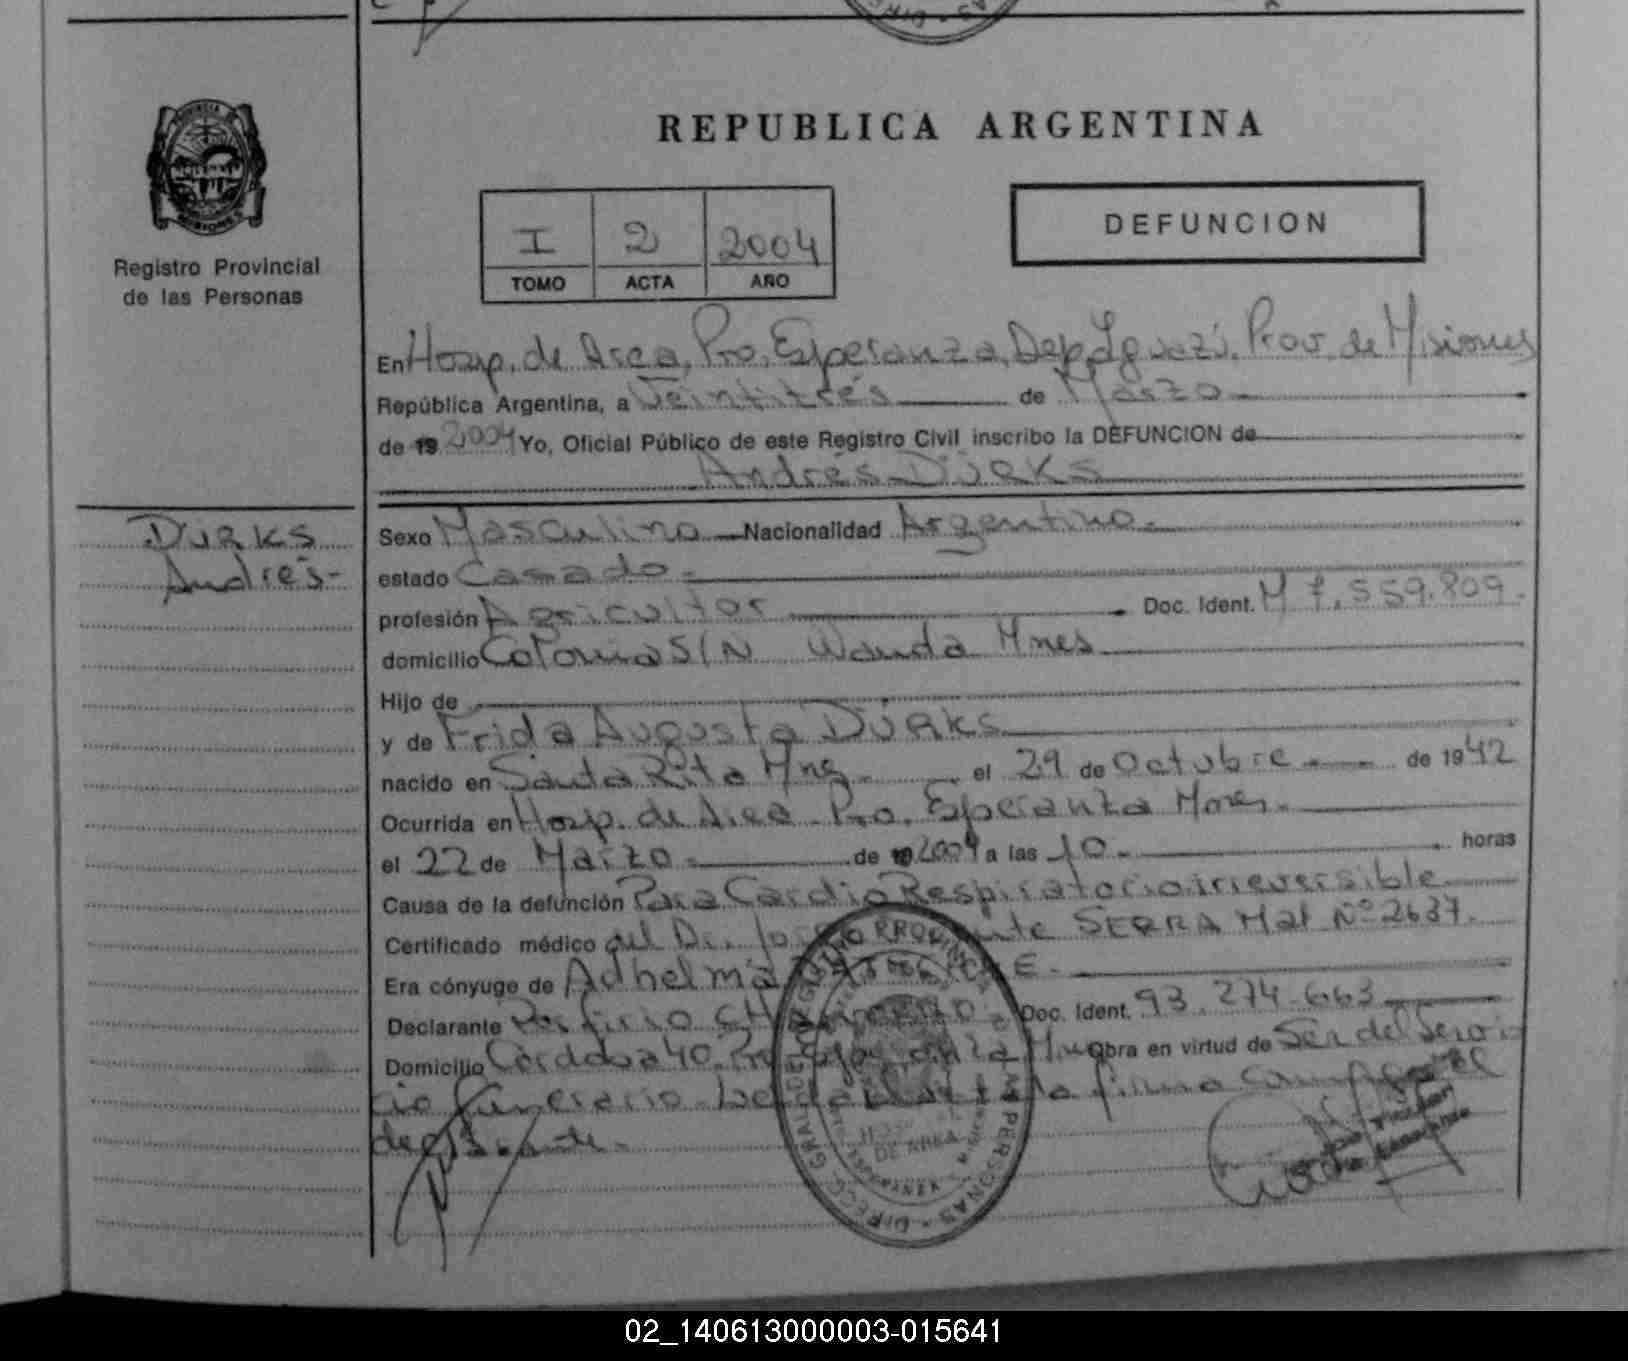 REPUBLICA ARGENTINA
PROVINCIA DE
MISIONES
Registro Provincial
de las Personas
I 2 2004
TOMO ACTA AÑO
DEFUNCION
En Hosp. de Area, Pto. Esperanza, Dep. Iguazú, Prov. de Misiones
República Argentina, a Veintitrés de Marzo
de 19 2004 Yo, Oficial Público de este Registro Civil inscribo la DEFUNCION de
Andrés DÜRKS
DÜRKS
Andrés-
Sexo Masculino Nacionalidad Argentino.
estado Casado-
profesión Agricultor Doc. Ident. M 7.559.809.
domicilio Colonia S/N Wanda Mnes
Hijo de
y de Frida Augusta DÜRKS
nacido en Santa Rita Mnes el 29 de Octubre de 1942
Ocurrida en Hosp. de Area Pto. Esperanza Mnes.
el 22 de Marzo de 2004 a las 10 horas
Causa de la defunción Para Cardio Respiratorio irreversible
Certificado médico del Dr. SERRA Mat Nº 2637.
Era cónyuge de Adhelma
Declarante Porfirio Doc. Ident. 93.274.663
Domicilio Córdoba 40 Obra en virtud de Ser del Servi
cio funerario. la firma conmigo el
declarante.
REGISTRO PROVINCIAL
DE LAS PERSONAS
DE AREA
02_140613000003-015641